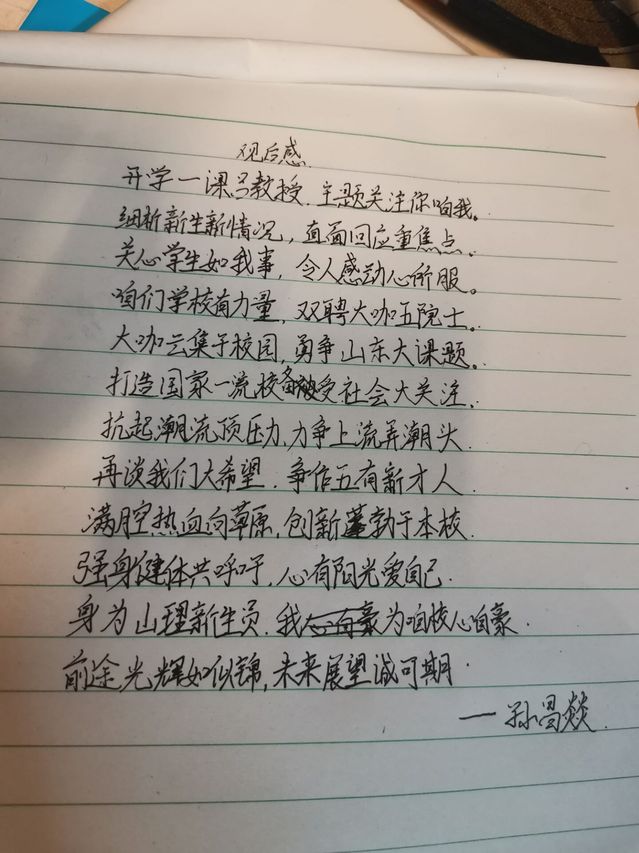 观后感
开学一课吕教授,主题关注你咱我。
细析新生新情况,直面回应重焦点。
关心学生如我事,令人感动心所服。
咱们学校有力量,双聘大咖五院士。
大咖云集于校园,勇争山东大课题。
打造国家一流校,备受社会大关注。
抗起潮流顶压力,力争上流弄潮头。
再谈我们大希望,争作五有新才人。
满腔热血向草原,创新蓬勃于本校。
强身健体共呼吁,心有阳光爱自己。
身为山理新生员,我为咱校心自豪。
前途光辉如似锦,未来展望诚可期。
——孙昌燚